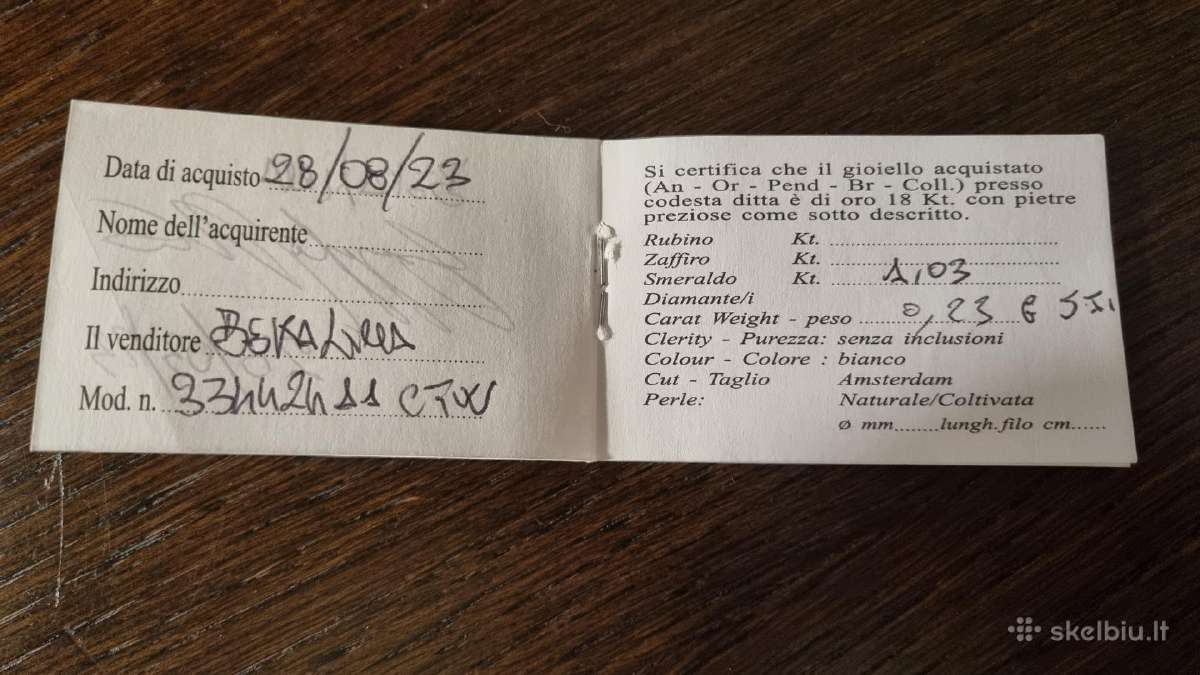 Data di acquisto 28/08/23
Nome dell'acquirente
Indirizzo
Il venditore
Mod. n.
Si certifica che il gioiello acquistato
(An - Or - Pend - Br - Coll.) presso
codesta ditta è di oro 18 Kt. con pietre
preziose come sotto descritto.
Rubino Kt.
Zaffiro Kt.
Smeraldo Kt. 1,03
Diamante/i
Carat Weight - peso 0,23 G SI1
Clerity - Purezza: senza inclusioni
Colour - Colore : bianco
Cut - Taglio Amsterdam
Perle: Naturale/Coltivata
ø mm.......lungh.filo cm......
skelbiu.lt